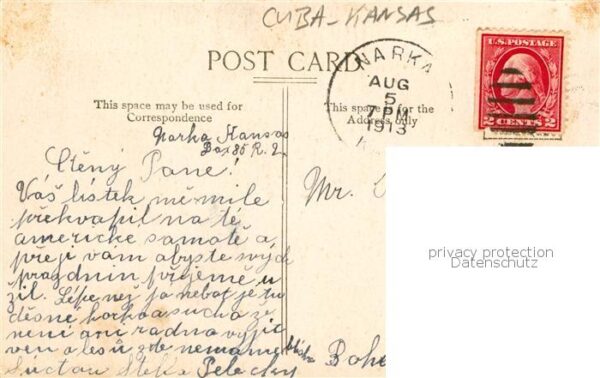 CUBA-KANSAS
POST CARD
NARKA
AUG
5
7 PM
1913
U.S. POSTAGE
2 CENTS 2
This space may be used for
Correspondence
This space for the
Address only
Narka Kansas
Box 85 R. 2.
Ctěný Pane!
Váš lístek mě mile
překvapil na té
americké samotě a
přeji vám abyste svých
prázdnin příjemě u
žil. Lépe než já neboť je tu
děsné horko a sucho že
není ani radno vyjít
ven a lesů zde nemáme
S úctou
Mr.
Bohe
privacy protection
Datenschutz